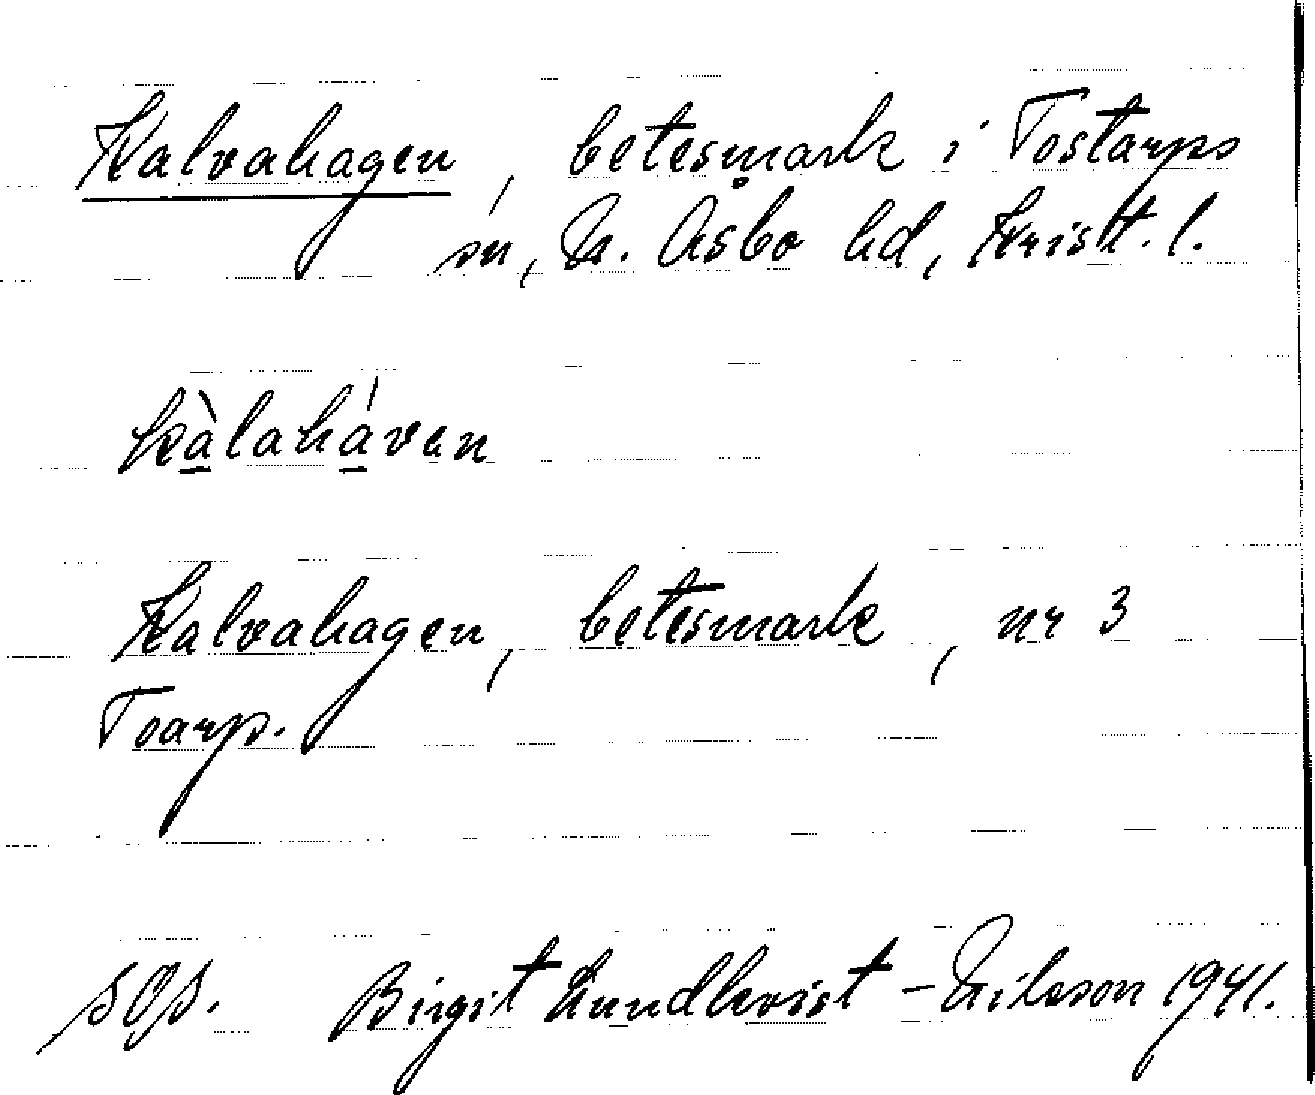 Kalvahagen, betesmark i Tostarps
sn, N. Åsbo hd, Krist. l.
kàlaháven
Kalvahagen, betesmark, nr 3
Toarp.
Birgit Lundkvist-Nilsson 1941.